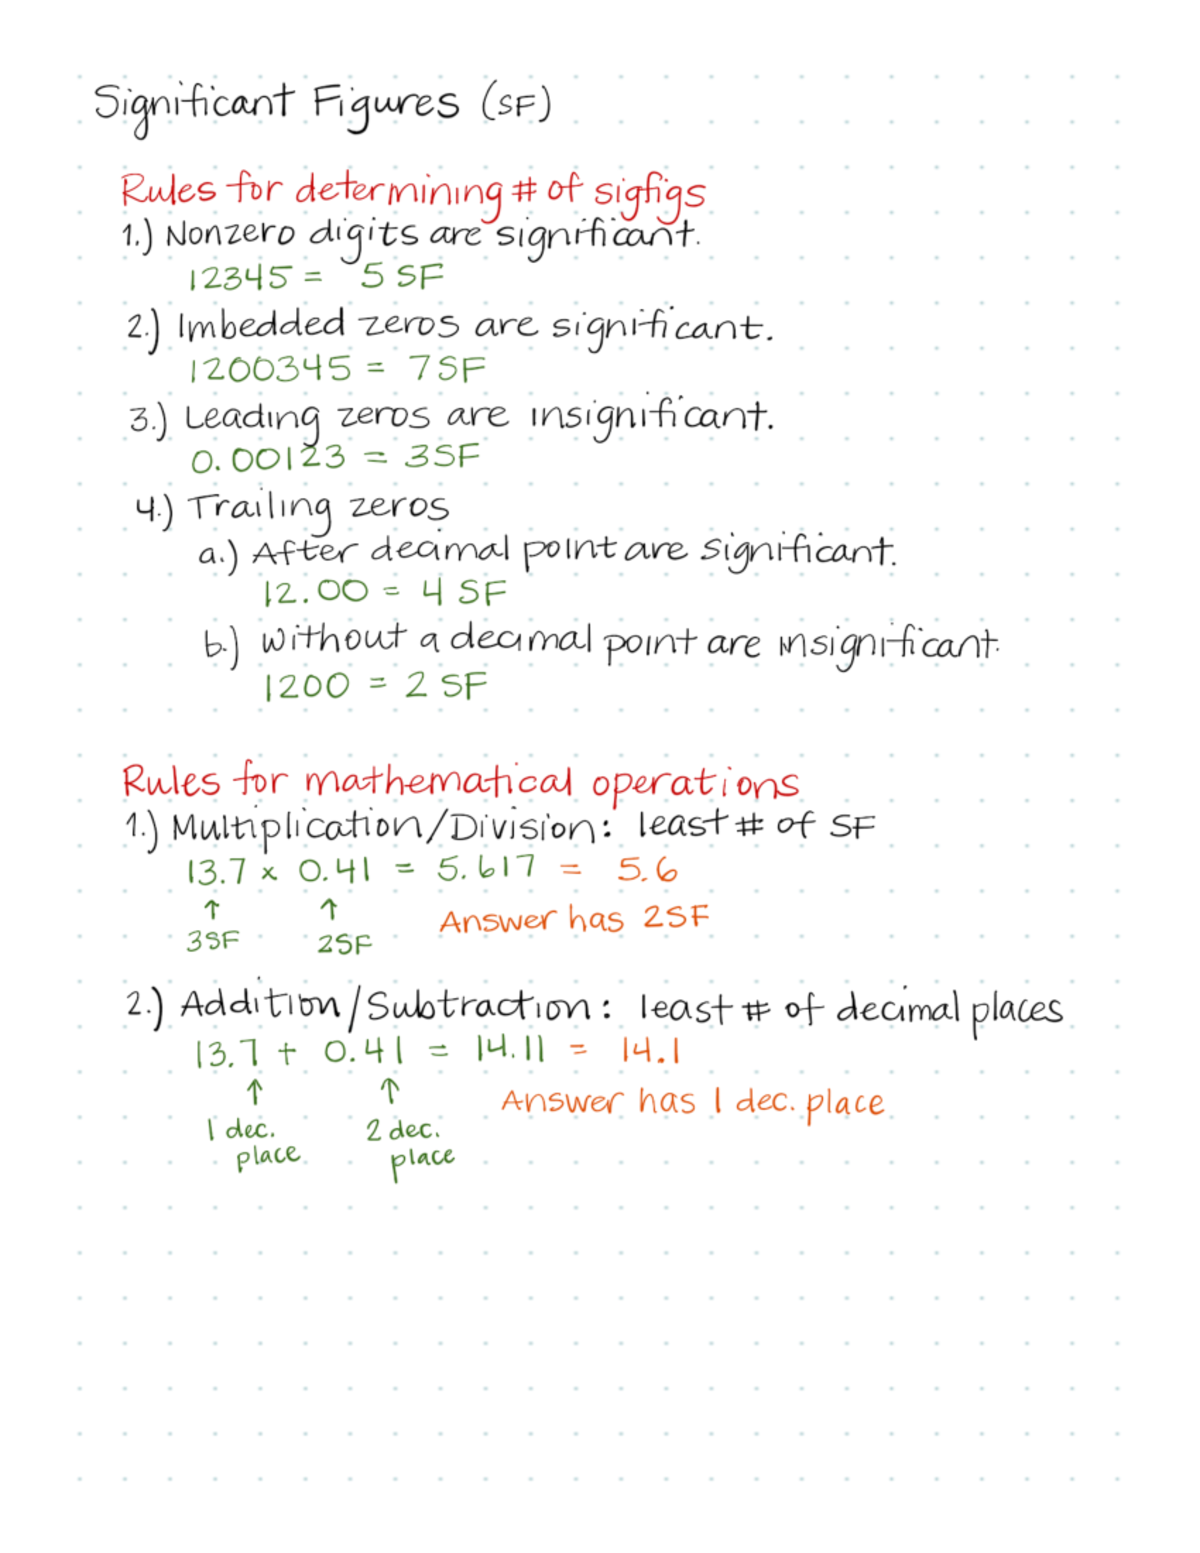 Significant Figures (SF)
Rules for determining # of sigfigs
1.) Nonzero digits are significant.
12345 = 5 SF
2.) Imbedded zeros are significant.
1200345 = 7SF
3.) Leading zeros are insignificant.
0.00123 = 3SF
4.) Trailing zeros
a.) After decimal point are significant.
12.00 = 4 SF
b.) without a decimal point are insignificant.
1200 = 2 SF
Rules for mathematical operations
1.) Multiplication/Division: least # of SF
13.7 x 0.41 = 5.617 = 5.6
↑ ↑ Answer has 2SF
3SF 2SF
2.) Addition/Subtraction: least # of decimal places
13.7 + 0.41 = 14.11 = 14.1
↑ ↑ Answer has 1 dec. place
1 dec. 2 dec.
place place